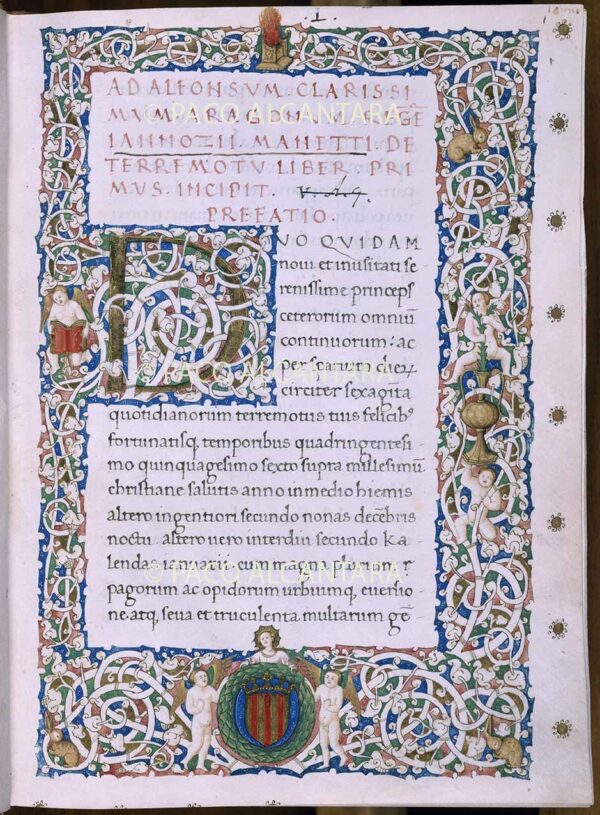 .I.
AD ALFONSVM CLARISSI
MVM ARAGONVM REGĒ
IANNOZII MANETTI DE
TERREMOTV LIBER PRI
MVS INCIPIT.
PREFATIO.
DVO QVIDAM
noui et inusitati se
renissime princeps
ceterorum omniū
continuorum: ac
per
circiter sexagīta
quotidianorum terremotus tuis felicibꝰ
fortunatisq, temporibus quadringentesi
mo quinquagesimo sexto supra millesimū
christiane salutis anno in medio hiemis
altero ingentiori secundo nonas decēbris
noctu. altero uero interdiu secundo ka
lendas ianuarii: cum magna plurium
pagorum ac opidorum urbiumq, euersio
ne. atq, seua et truculenta multarum gē
© PACO ALCANTARA
© PACO ALCANTARA
© PACO ALCANTARA